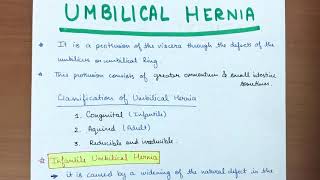 UMBILICAL HERNIA
It is a protrusion of the viscera through the defects of the
umbilicus or umbilical Ring.
This protrusion consists of greater omentum & small intestine
sometimes.
Classification of Umbilical Hernia
1. Congenital (Infantile)
2. Aquired (Adult)
3. Reducible and irreducible.
Infantile Umbilical Hernia
→ it is caused by a widening of the natural defect in the